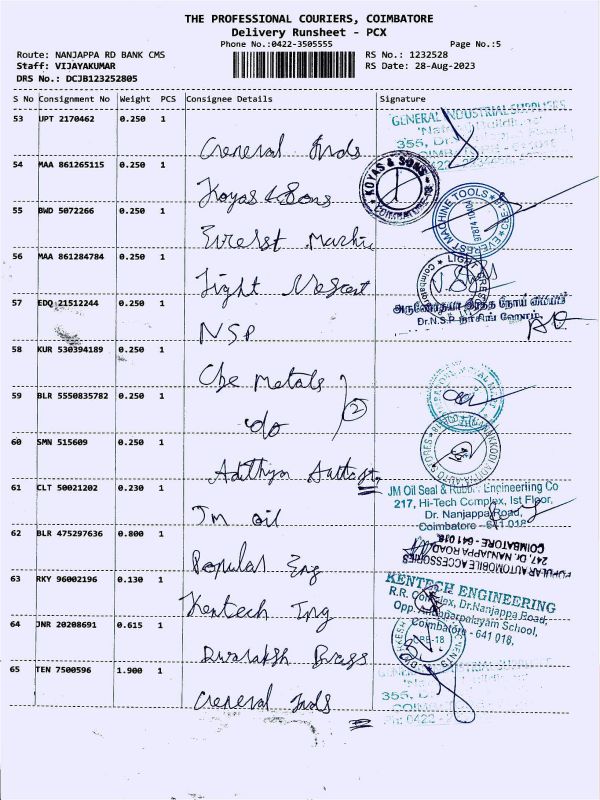 THE PROFESSIONAL COURIERS, COIMBATORE
Delivery Runsheet - PCX
Phone No.:0422-3505555
Page No.:5
Route: NANJAPPA RD BANK CMS
RS No.: 1232528
Staff: VIJAYAKUMAR
RS Date: 28-Aug-2023
DRS No.: DCJB123252805
S No Consignment No Weight PCS Consignee Details Signature
53 UPT 2170462 0.250 1
General Inds
GENERAL INDUSTRIAL SUPPLIES
355, Dr.
54 MAA 861265115 0.250 1
Koyas & Sons
KOYAS & SONS
COIMBATORE-18
55 BWD 5072266 0.250 1
Everest Machine
EVEREST MACHINE TOOLS
56 MAA 861284784 0.250 1
Light
LIGHT
Coimbatore
57 EDQ 21512244 0.250 1
NSP
Dr.N.S.P
58 KUR 530394189 0.250 1
Cbe metals
59 BLR 5550835782 0.250 1
do
2
60 SMN 515609 0.250 1
Adithya
61 CLT 50021202 0.230 1
JM oil
JM Oil Seal & Rubber Engineering Co
217, Hi-Tech Complex, Ist Floor,
Dr. Nanjappa Road,
Coimbatore - 641 018
62 BLR 475297636 0.800 1
Popular Eng
POPULAR AUTOMOBILE ACCESSORIES
247, Dr. NANJAPPA ROAD
COIMBATORE - 641 018.
63 RKY 96002196 0.130 1
Kentech Ing
KENTECH ENGINEERING
R.R. Complex, Dr.Nanjappa Road,
Opp. School,
Coimbatore - 641 018,
64 JNR 20208691 0.615 1
CBE-18
65 TEN 7500596 1.900 1
General Inds
355,
Ph: 0422